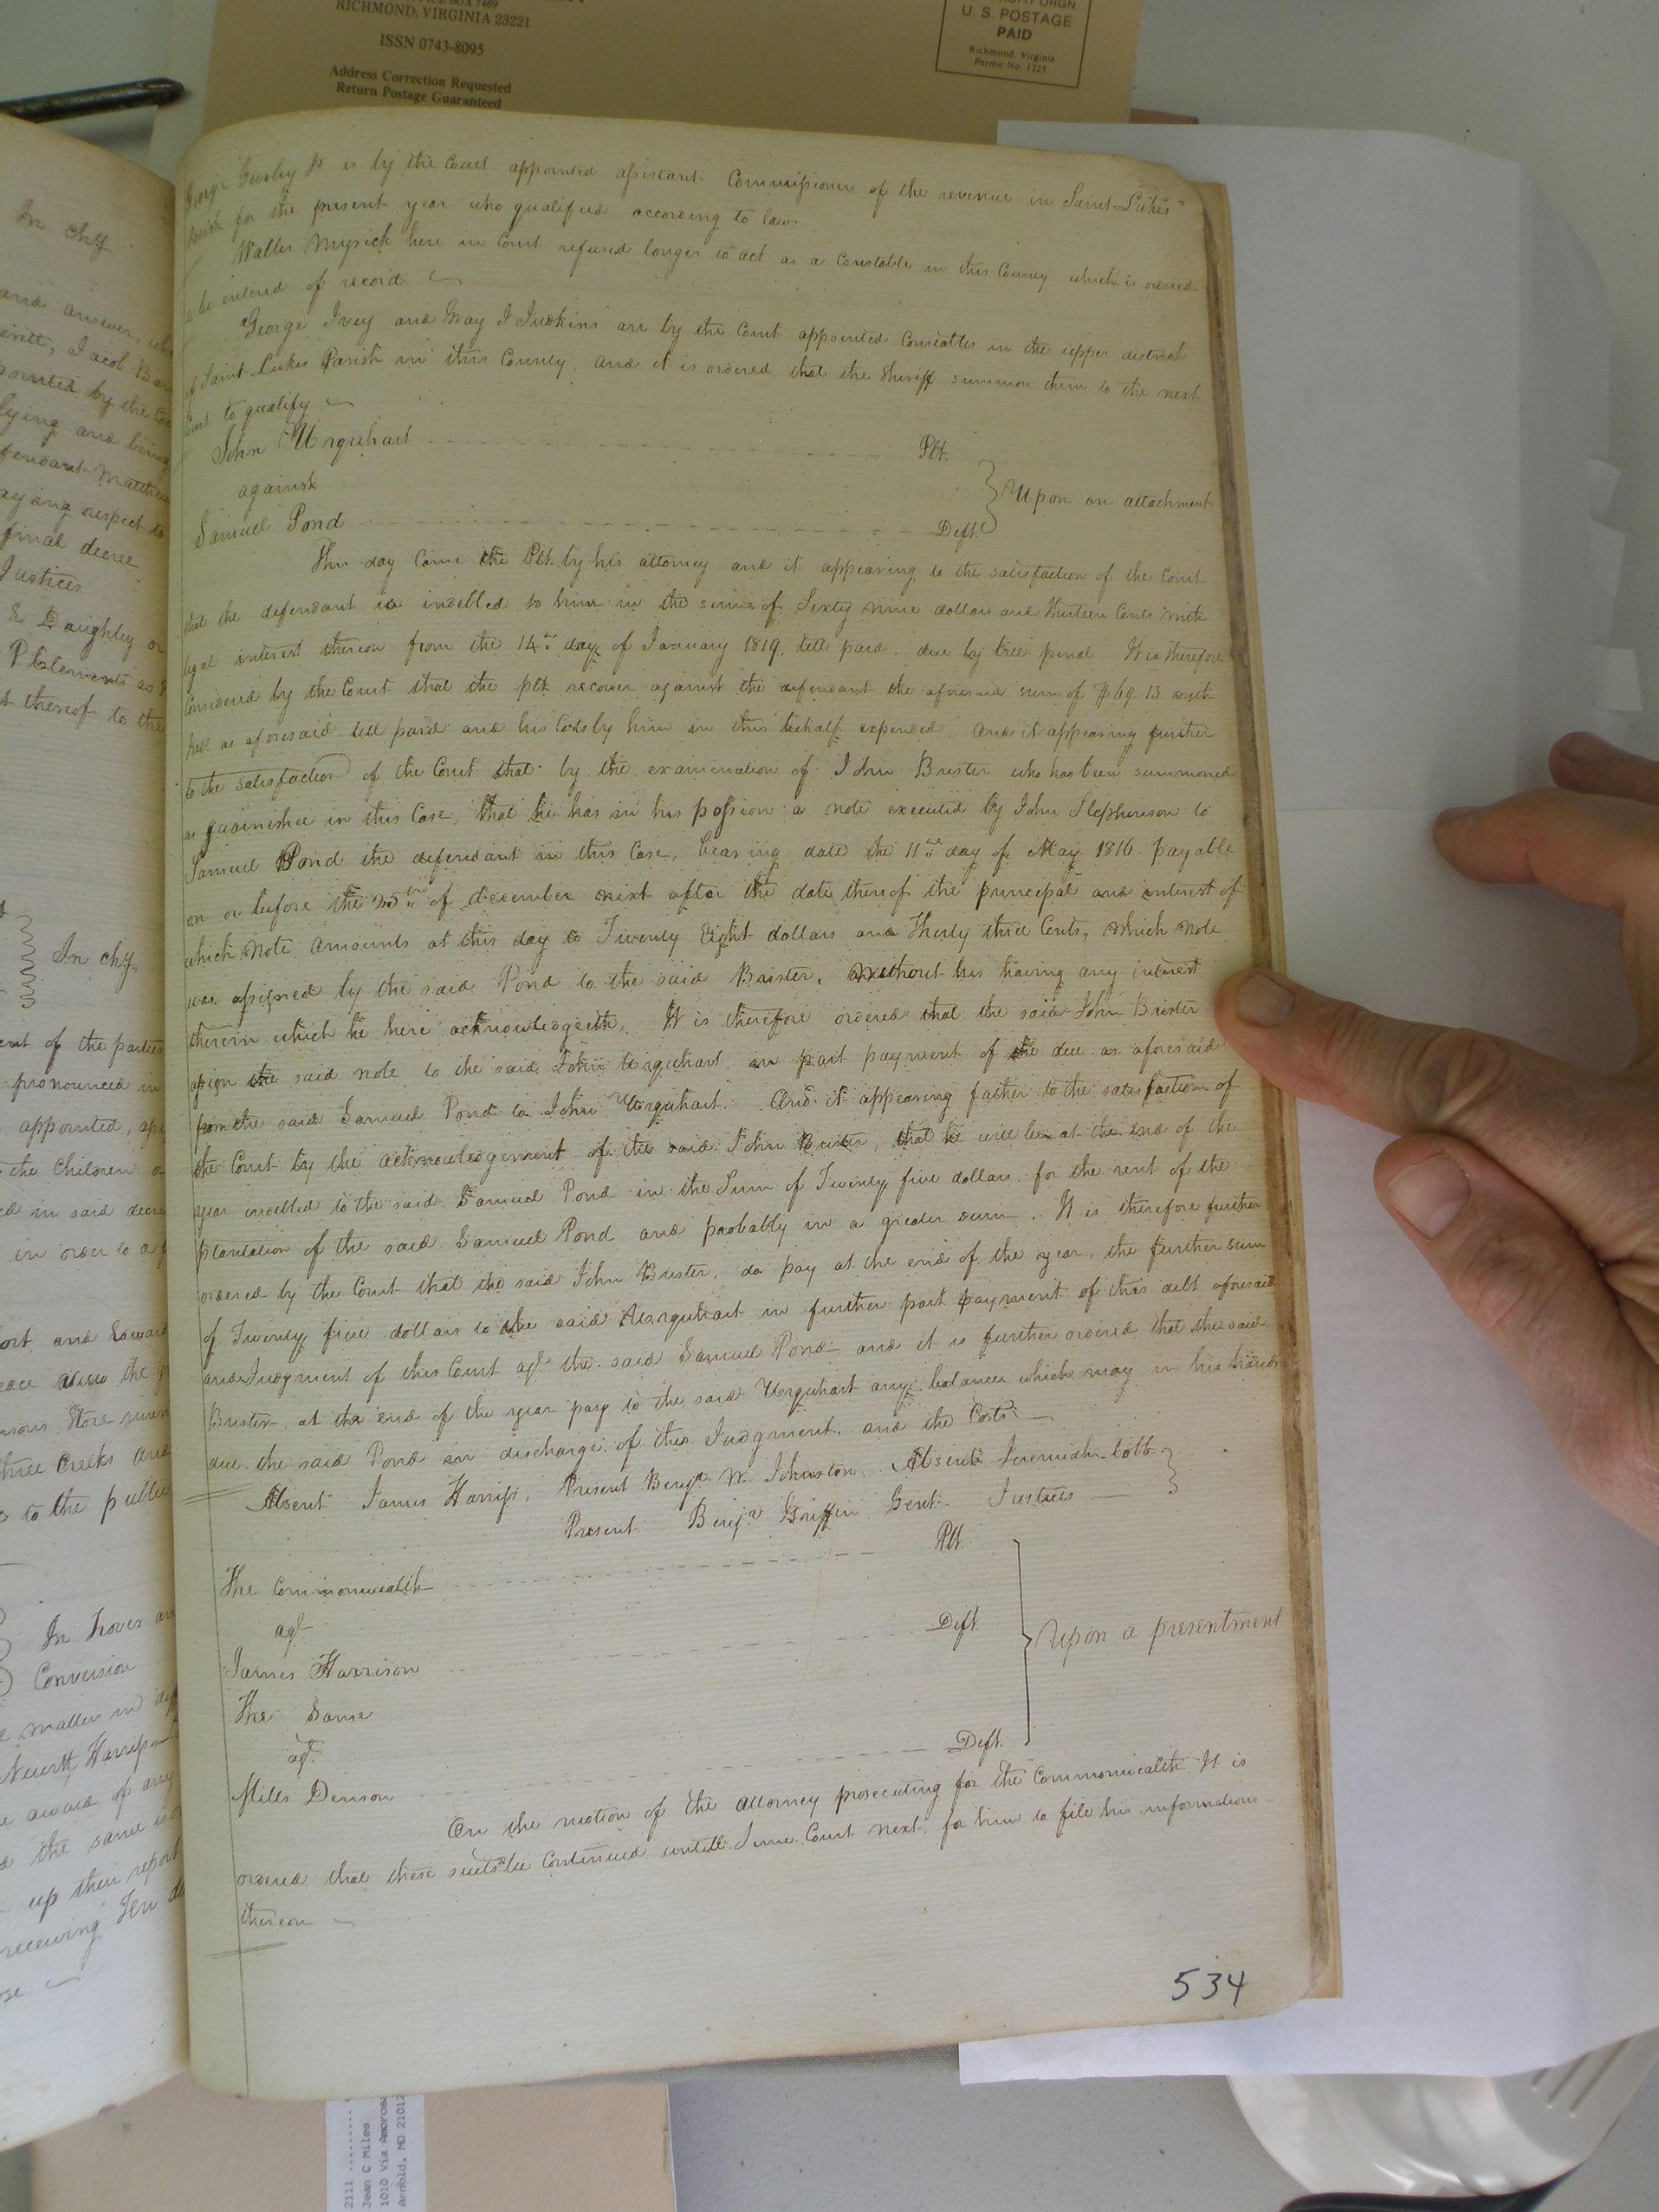 RICHMOND, VIRGINIA 23221
ISSN 0743-8095
Address Correction Requested
Return Postage Guaranteed
U. S. POSTAGE
PAID
Richmond, Virginia
Permit No. 1225
In chy
and answer
Jacob
pointed by the
lying and being
fendant Matthew
aying respect to
final decree
Justices
& Daughtry or
P Clements as
t thereof to the
In chy.
ent of the parties
pronounced in
appointed,
the Children
ed in said decree
in order to a
ort and Edward
the
Store
three Creeks and
to the public
In trover an
Conversion
matters in
Newitt Harriss
award of any
the same is
up their report
receiving Ten
George Gurley Jr is by the Court appointed assistant Commissioner of the revenue in Saint Lukes
parish for the present year who qualified according to law.
Walter Myrick here in Court refused longer to act as a Constable in this County which is ordered
to be entered of record
George Ivey and Gray J Judkins are by the Court appointed Constables in the upper district
of Saint Lukes Parish in this County, and it is ordered that the Sheriff summon them to the next
Court to qualify
John Urquhart Plt.
against
Upon an attachment
Samuel Pond Deft.
This day Came the Plt. by his attorney and it appearing to the satisfaction of the Court
that the defendant is indebted to him in the sum of Sixty nine dollars and thirteen Cents with
legal interest thereon from the 14th day of January 1819. till paid. due by bill penal It is therefore
Considered by the Court that the plt recover against the defendant the aforesaid sum of $69.13 with
as aforesaid till paid and his Costs by him in this behalf expended. And it appearing further
to the satisfaction of the Court that by the examination of John Brister who has been summoned
as guarnishee in this Case, that he has in his possion a note executed by John Stephenson to
Samuel Pond the defendant in this Case, bearing date the 11th day of May 1816 payable
on or before the 25th of december next after the date thereof the principal and interest of
which note amounts at this day to Twenty Eight dollars and Thirty three Cents, which note
was assigned by the said Pond to the said Brister, without his having any interest
therein which he here acknowledgeth, It is therefore ordered that the said John Brister
assign the said note to the said John Urquhart in part payment of the due as aforesaid
from the said Samuel Pond to John Urquhart. And it appearing father to the satisfaction of
the Court by the acknowledgement of the said John Brister, that he will be at the end of the
year indebted to the said Samuel Pond in the Sum of Twenty five dollars for the rent of the
plantation of the said Samuel Pond and probably in a greater sum. It is therefore further
ordered by the Court that the said John Brister, do pay at the end of the year, the further sum
of Twenty five dollars to the said Urquhart in further part payment of this debt aforesaid
and Judgment of this Court agt the said Samuel Pond and it is further ordered that the said
Brister at the end of the year pay to the said Urquhart any balance which may in his hands
due the said Pond in discharge of this Judgment, and the Costs
Absent James Harriss, Present Benja W. Johnston, Absent Jeremiah Cobb
Present Benja Griffin Gent. Justices
Plt.
The Commonwealth
agt
Deft.
Upon a presentment
James Harrison
The Same
agt.
Deft.
Mills Denson
On the motion of the attorney prosecuting for the Commonwealth It is
ordered that these suits be Continued untill June Court next, for him to file his informations
thereon
534
2111
Jean C Miles
1010 Via Amorosa
Arnold, MD 21012